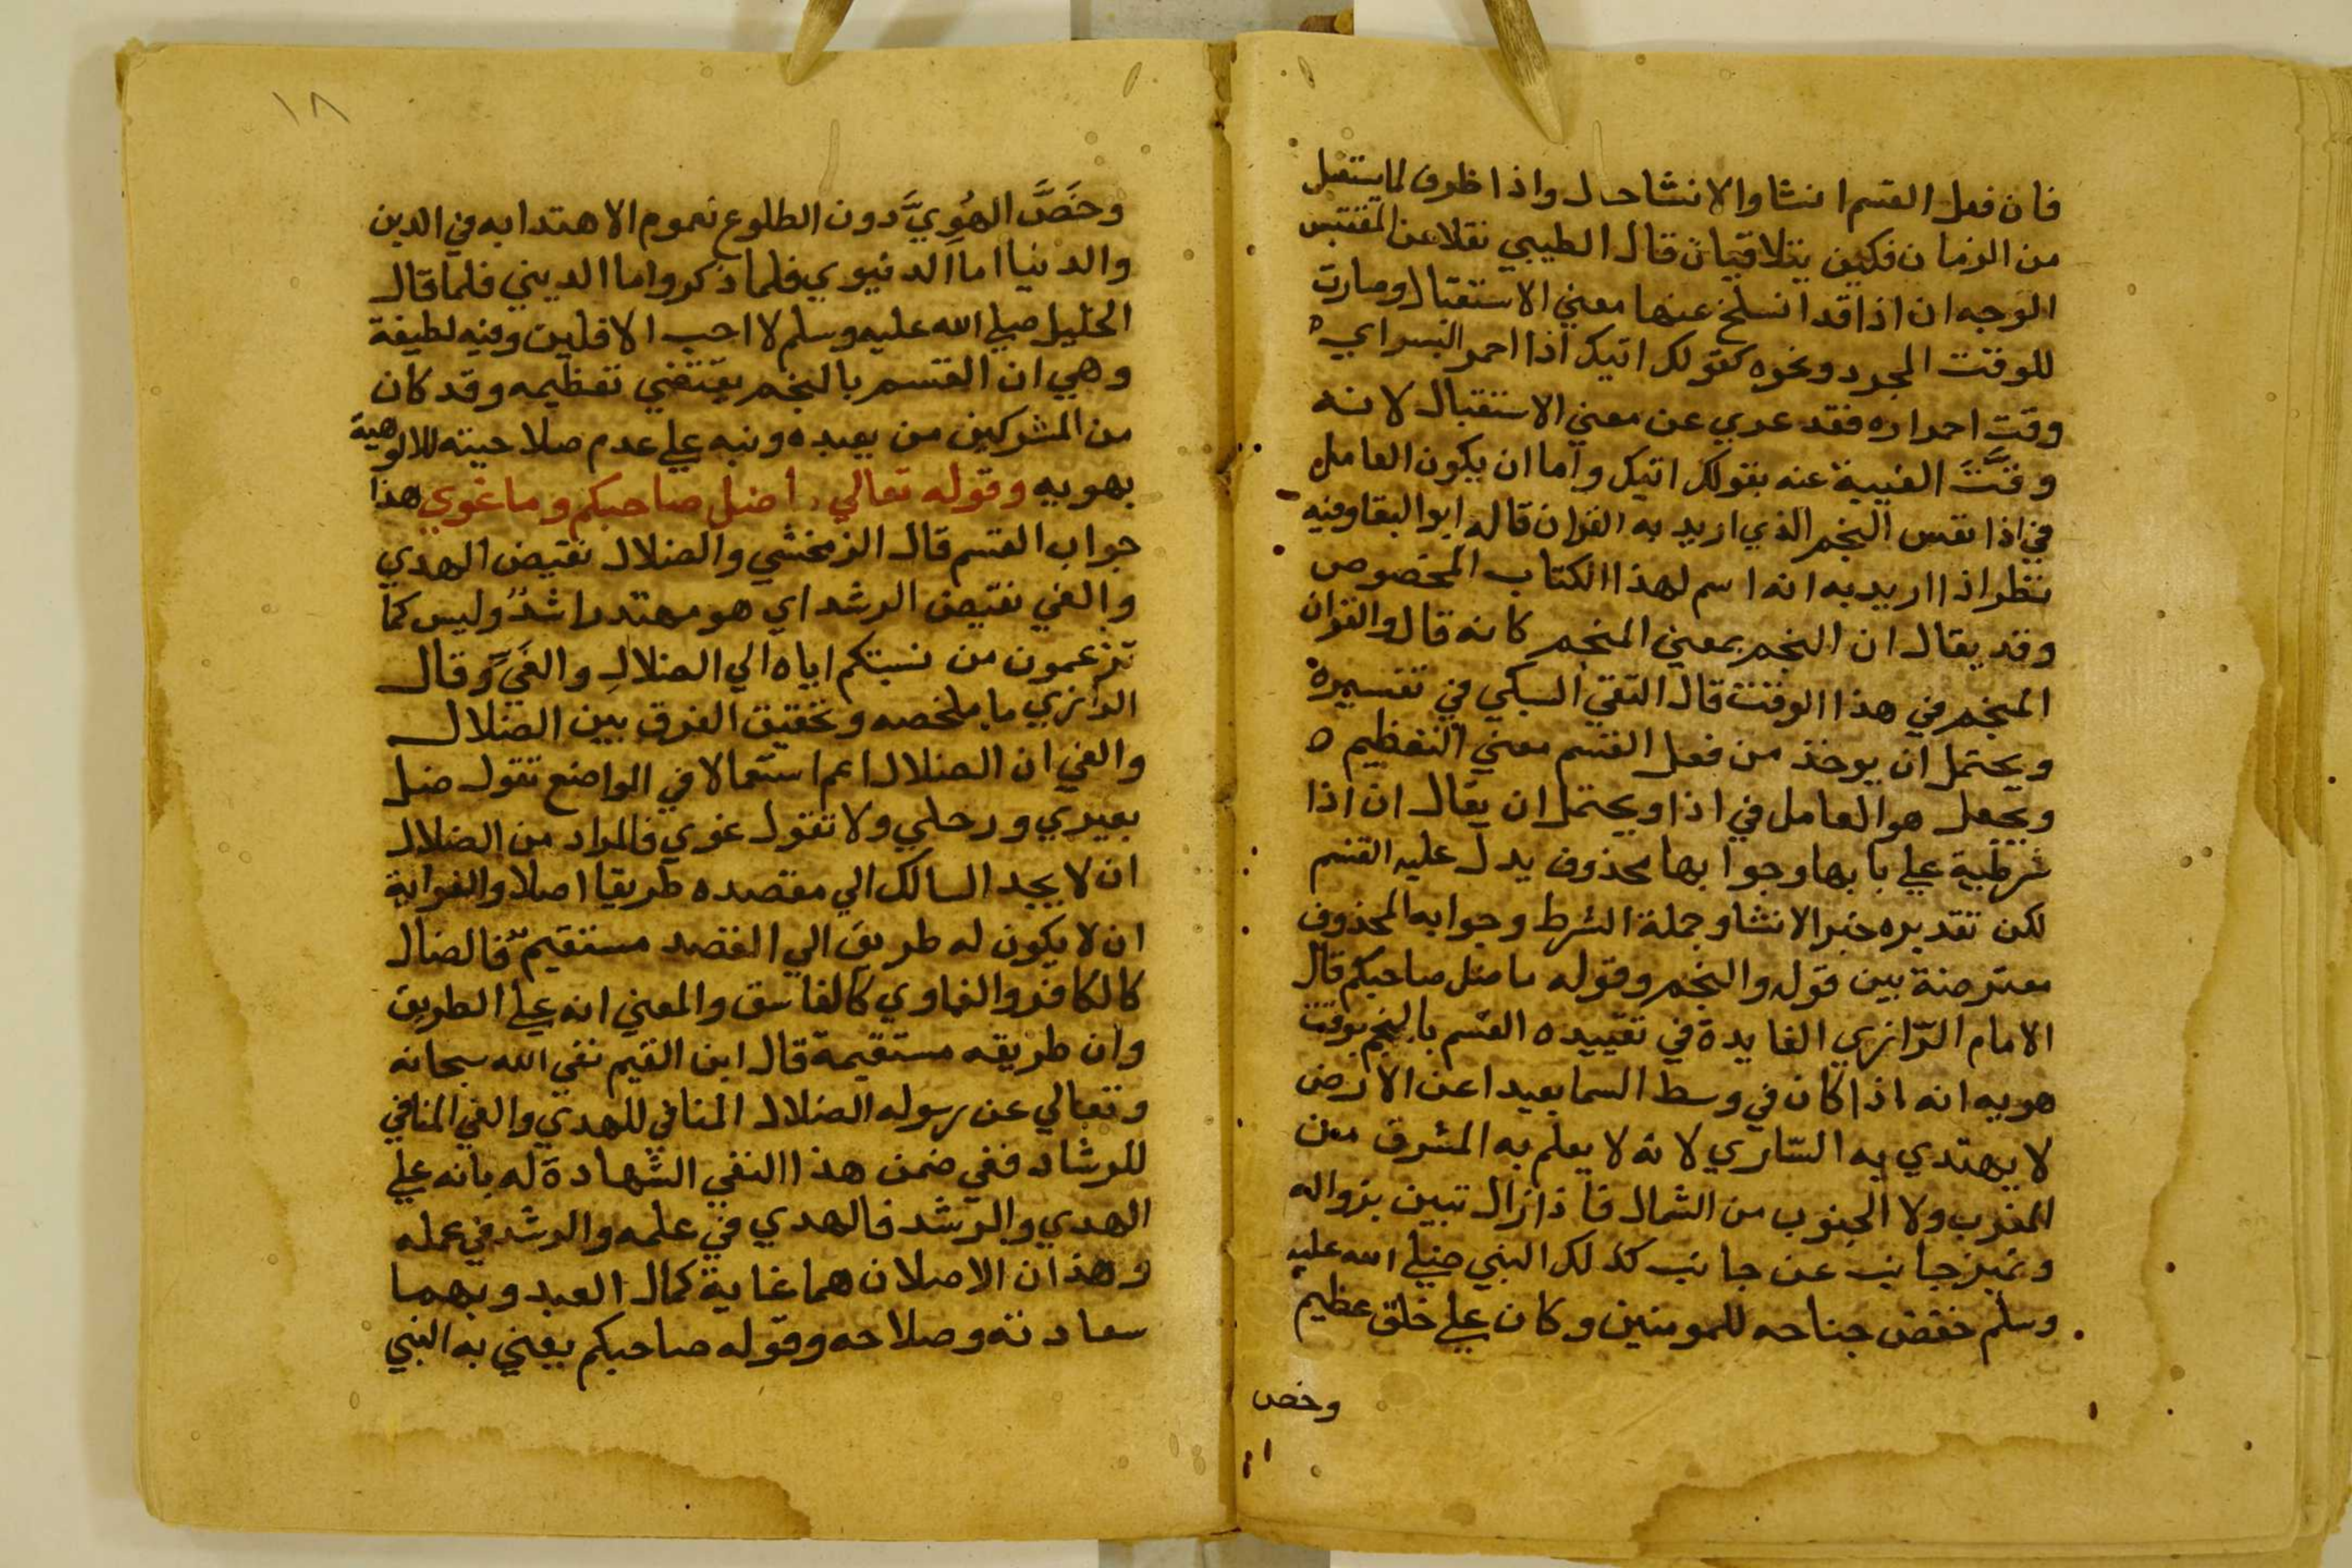 فان فعل القسم انشا والانشا حال واذا ظرف لما يستقبل
من الزمان فكيف يتلاقيان قال الطيبي نقلا عن المقتبس
الوجه ان اذا قد انسلخ عنها معني الاستقبال وصارت
للوقت المجرد ونحوه كقولك اتيك اذا احمر البسر اي
وقت احمراره فقد عري عن معني الاستقبال لانه
وقت الغيبة عنه بقولك اتيك واما ان يكون العامل
في اذا نفس النجم الذي اريد به القران قاله ابو البقا وفيه
نظر اذا اريد به انه اسم لهذا الكتاب المخصوص
وقد يقال ان النجم بمعني المنجم كانه قال والقران
المنجم في هذا الوقت قال التقي السبكي في تفسيره
ويحتمل ان يوخذ من فعل القسم معني التعظيم ه
ويجعل هو العامل في اذا ويحتمل ان يقال ان اذا
شرطية علي بابها وجوابها محذوف يدل عليه القسم
لكن تقديره خبر الانشا وجملة الشرط وجوابه المحذوف
معترضة بين قوله والنجم وقوله ما ضل صاحبكم قال
الامام الرّازي الفايدة في تقييده القسم بالنجم بوقت
هويه انه اذا كان في وسط السما بعيدا عن الارض
لا يهتدي به السّاري لانه لا يعلم به المشرق من
المغرب ولا الجنوب من الشمال فاذا زال تبين بزواله
وتميز جانب عن جانب كذلك النبي صلي الله عليه
وسلم خفض جناحه للمومنين وكان علي خلق عظيم
وخص
١٨
وخَصَّ الهُوِيَّ دون الطلوع لعموم الاهتدا به في الدين
والدنيا اما الدنيوي فلما ذكر واما الديني فلما قال
الخليل صلي الله عليه وسلم لا احب الافلين وفيه لطيفة
وهي ان القسم بالنجم يقتضي تعظيمه وقد كان
من المشركين من يعبده ونبه علي عدم صلاحيته للالوهية
بهويه وقوله تعالي ما ضل صاحبكم وما غوي هذا
جواب القسم قال الزمخشي والضلال نقيض الهدي
والغي نقيض الرشد اي هو مهتد راشد وليس كما
تزعمون من نسبتكم اياه الي الضلال والغَيِّ وقال
الرازي ما ملخصه وتحقيق الفرق بين الضلال
والغي ان الضلال اعم استعمالا في المواضع تقول ضل
بعيري ورحلي ولا تقول غوي فالمراد من الضلال
ان لا يجد السالك الي مقصده طريقا اصلا والغواية
ان لا يكون له طريق الي القصد مستقيم فالضال
كالكافر والغاوي كالفاسق والمعني انه علي الطريق
وان طريقه مستقيمة قال ابن القيم نفي الله سبحانه
وتعالي عن رسوله الضلال المنافي للهدي والغي المنافي
للرشاد ففي ضمن هذا النفي الشّهادة له بانه علي
الهدي والرشد فالهدي في علمه والرشد في عمله
وهذان الاصلان هما غاية كمال العبد وبهما
سعادته وصلاحه وقوله صاحبكم يعني به النبي